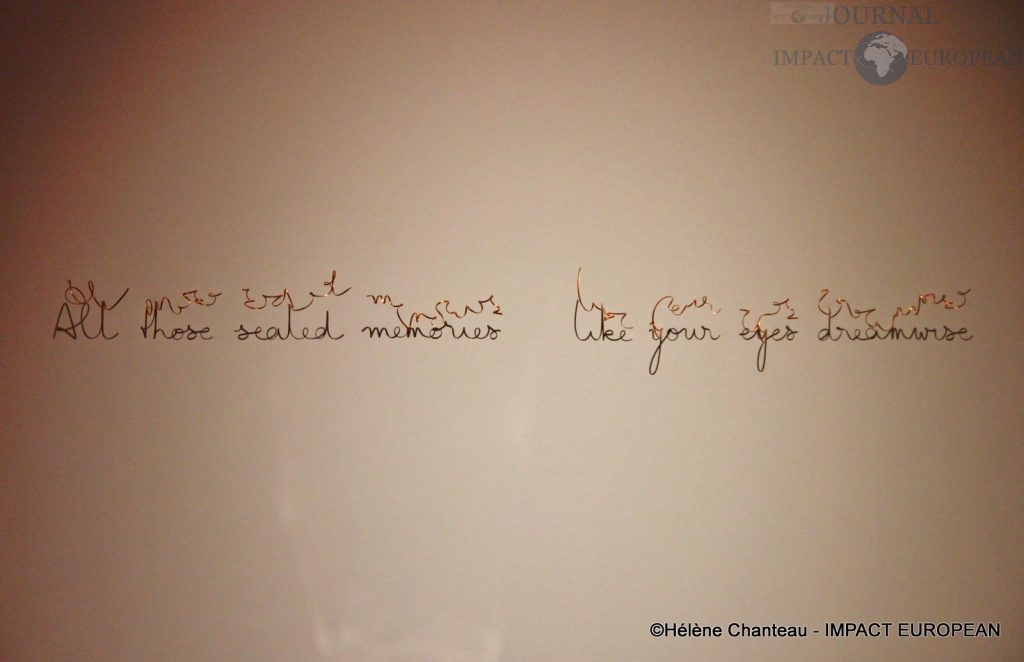 JOURNAL
IMPACT EUROPEAN
All those sealed memories like your eyes dreamwise
©Hélène Chanteau - IMPACT EUROPEAN